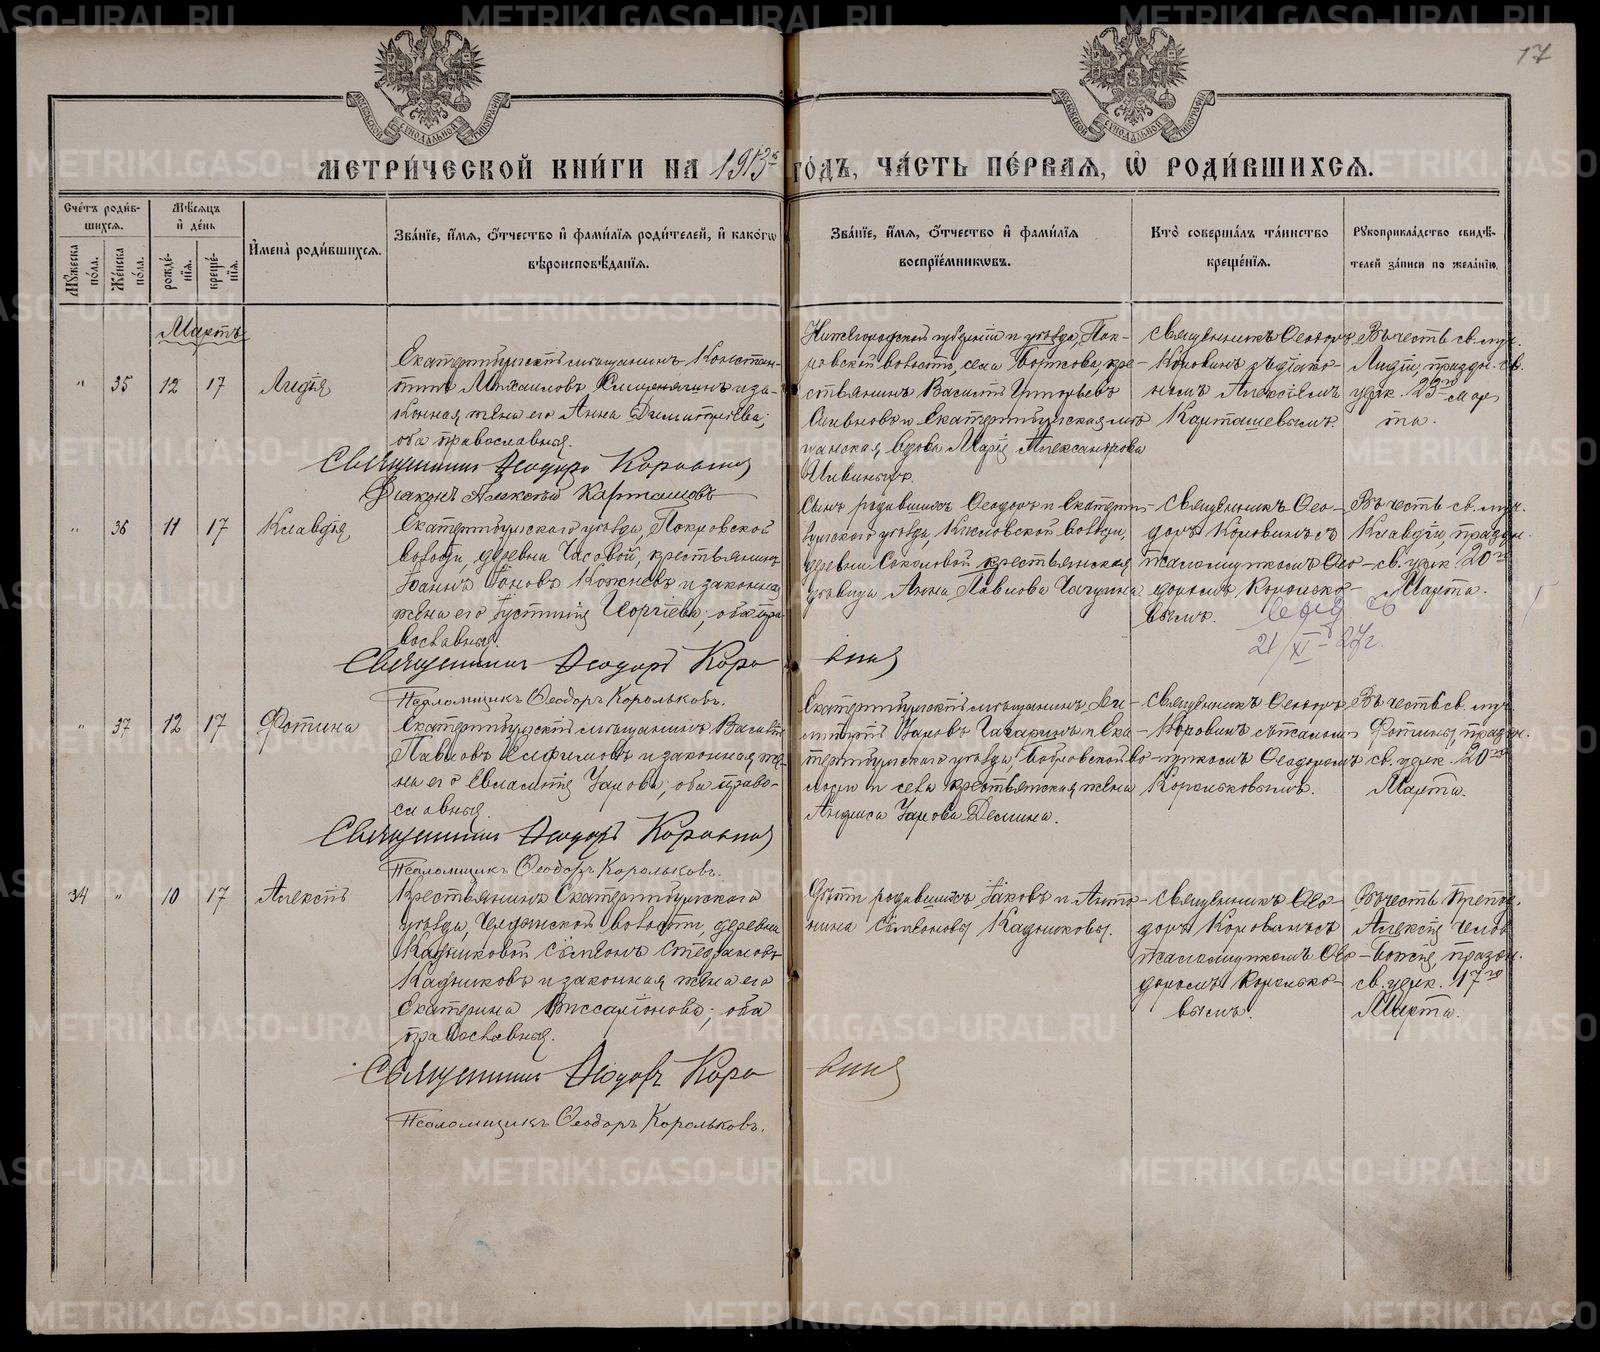 17
МЕТРИ́ЧЕСКОЙ КНИ́ГИ НА 1913й ГО́ДЪ, ЧА́СТЬ ПЕ́РВАЯ, Ѽ РОДИ́ВШИХСЯ.
Сче́тъ роди́вшихся.
Мꙋ́жеска по́ла.
Же́нска по́ла.
Мѣ́сяцъ и҆ де́нь
рожде́нїя.
креще́нїя.
И҆мена̀ роди́вшихся.
Зва́нїе, и҆́мя, ѻ҆́тчество и҆ фами́лїя роди́телей, и҆ како́гѡ
вѣроисповѣ́данїя.
Зва́нїе, и҆́мя, ѻ҆́тчество и҆ фами́лїя
воспрїе́мникѡвъ.
Кто̀ соверша́лъ та́инство
креще́нїя.
Рꙋкоприкла́дство свидѣ́-
телей за́писи по жела́нїю.
Мартъ
" 35 12 17 Лидія
Екатеринбургскій мѣщанинъ Констан-
тинъ Михаиловъ и за-
конная жена его Анна Димитріева;
оба православныя.
Священникъ Ѳеодоръ Коровинъ
Діаконъ Алексѣй Карташовъ
Нижегородской губерніи и уѣзда,
волости, села кре-
стьянинъ Василій Григорьевъ
и Екатеринбургская мѣ-
щанская вдова Марія Александрова
Священникъ Ѳеодоръ
Коровинъ съ діако-
номъ Алексіемъ
Карташевымъ.
Въ честь св. муч.
Лидіи, праздн. св.
церк. 23го Мар
та.
" 36 11 17 Клавдія
Екатеринбургскаго уѣзда, Покровской
волости, деревни Часовой, крестьянинъ
Іоаннъ Іоновъ Кожневъ и законная
жена его Іустинія Георгіева; оба пра
вославныя.
Священникъ Ѳеодоръ Коро винъ
Псаломщикъ Ѳеодоръ Корольковъ.
Сынъ родившихъ Ѳеодоръ и Екатерин-
бургскаго уѣзда, Кисловской волости,
деревни Соколовой крестьянская
дѣвица Анна Павлова
Священникъ Ѳео-
доръ Коровинъ съ
псаломщикомъ Ѳео-
доромъ Королько-
вымъ.
21/XI - 27г.
Въ честь св. муч.
Клавдіи, праздн.
св. церк. 20го
Марта.
" 37 12 17 Фотина
Екатеринбургскій мѣщанинъ Василій
Павловъ и законная же-
на его Евлампія Уарова; оба право-
славныя.
Священникъ Ѳеодоръ Коровинъ
Псаломщикъ Ѳеодоръ Корольковъ.
Екатеринбургскій мѣщанинъ Ди-
митрій Уаровъ и Ека-
теринбургскаго уѣзда, Бобровской во-
лости и села крестьянская жена
Анфиса Уарова Демина.
Священникъ Ѳеодоръ
Коровинъ съ псалом-
щикомъ Ѳеодоромъ
Корольковымъ.
Въ честь св. муч.
Фотины, праздн.
св. церк. 20го
Марта.
34 " 10 17 Алексѣй
Крестьянинъ Екатеринбургскаго
уѣзда, волости, деревни
Кадниковой Сѵмеонъ Стефановъ
Кадниковъ и законная жена его
Екатерина Виссаріонова; оба
православныя.
Священникъ Ѳеодоръ Коро винъ
Псаломщикъ Ѳеодоръ Корольковъ.
Дѣти родившихъ Іаковъ и Анто-
нина Сѵмеоновы Кадниковы.
Священникъ Ѳео-
доръ Коровинъ съ
псаломщикомъ Ѳео-
доромъ Королько-
вымъ.
Въ честь Препод.
Алексія Челов
Божія, праздн.
св. церк. 17го
Марта.
METRIKI.GASO-URAL.RU